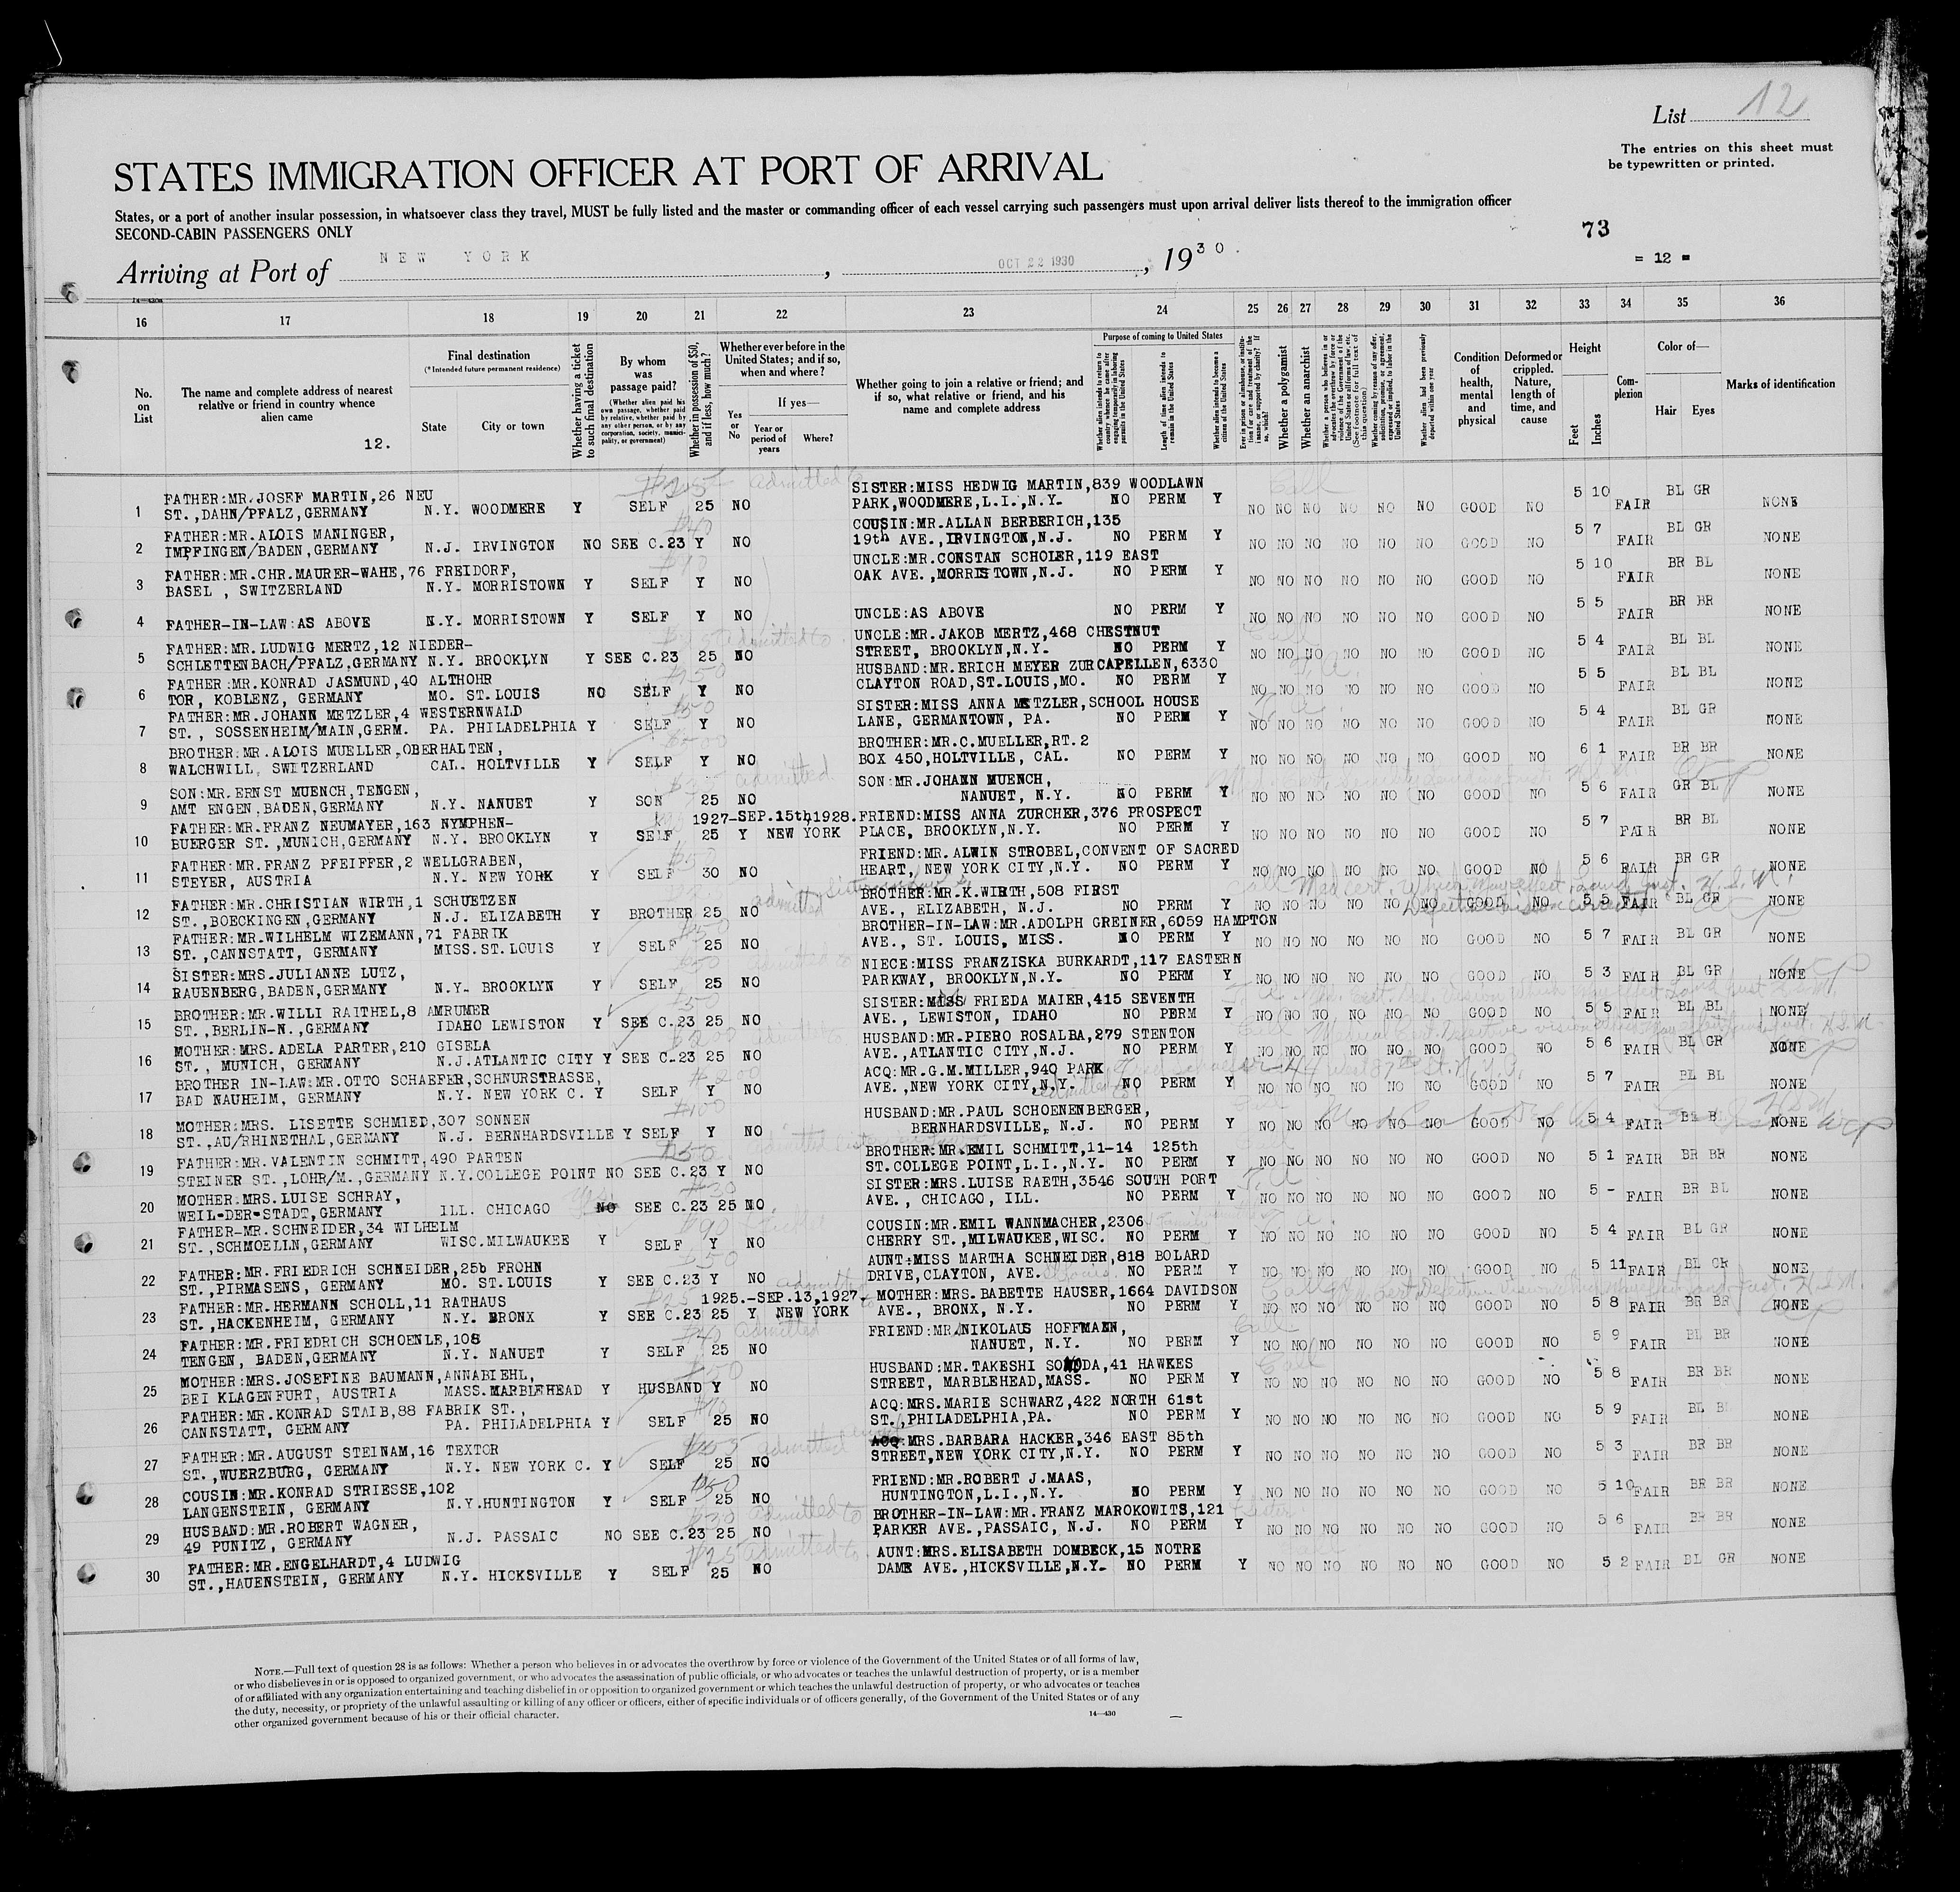 List 12
The entries on this sheet must
be typewritten or printed.
STATES IMMIGRATION OFFICER AT PORT OF ARRIVAL
States, or a port of another insular possession, in whatsoever class they travel, MUST be fully listed and the master or commanding officer of each vessel carrying such passengers must upon arrival deliver lists thereof to the immigration officer
SECOND-CABIN PASSENGERS ONLY
73
Arriving at Port of NEW YORK, OCT 22 1930, 1930.
= 12 =
16 17 18 19 20 21 22 23 24 25 26 27 28 29 30 31 32 33 34 35 36
No. on List
The name and complete address of nearest relative or friend in country whence alien came
12.
Final destination
(*Intended future permanent residence)
State
City or town
Whether having a ticket to such final destination
By whom was passage paid?
(Whether alien paid his own passage, whether paid by relative, whether paid by any other person, or by any corporation, society, municipality, or government)
Whether in possession of $50, and if less, how much?
Whether ever before in the United States; and if so, when and where?
Yes or No
If yes—
Year or period of years
Where?
Whether going to join a relative or friend; and if so, what relative or friend, and his name and complete address
Purpose of coming to United States
Whether alien intends to return to country whence he came after engaging temporarily in laboring pursuits in the United States
Length of time alien intends to remain in the United States
Whether alien intends to become a citizen of the United States
Whether a polygamist
Whether an anarchist
Condition of health, mental and physical
Deformed or crippled. Nature, length of time, and cause
Height
Feet
Inches
Complexion
Color of—
Hair
Eyes
Marks of identification
FATHER:MR.JOSEF MARTIN,26 NEU SISTER:MISS HEDWIG MARTIN,839 WOODLAWN
1 ST.,DAHN/PFALZ,GERMANY N.Y. WOODMERE Y SELF 25 NO PARK,WOODMERE,L.I.,N.Y. NO PERM Y NO NO NO NO NO NO GOOD NO 5 10 FAIR BL GR NONE
FATHER:MR.ALOIS MANINGER, COUSIN:MR.ALLAN BERBERICH,135
2 IMPFINGEN/BADEN,GERMANY N.J. IRVINGTON NO SEE C.23 Y NO 19th AVE.,IRVINGTON,N.J. NO PERM Y NO NO NO NO NO NO GOOD NO 5 7 FAIR BL GR NONE
FATHER:MR.CHR.MAURER-WAHE,76 FREIDORF, UNCLE:MR.CONSTAN SCHOLER,119 EAST
3 BASEL , SWITZERLAND N.Y. MORRISTOWN Y SELF Y NO OAK AVE.,MORRISTOWN,N.J. NO PERM Y NO NO NO NO NO NO GOOD NO 5 10 FAIR BR BL NONE
4 FATHER-IN-LAW:AS ABOVE N.Y. MORRISTOWN Y SELF Y NO UNCLE:AS ABOVE NO PERM Y NO NO NO NO NO NO GOOD NO 5 5 FAIR BR BR NONE
FATHER:MR.LUDWIG MERTZ,12 NIEDER- UNCLE:MR.JAKOB MERTZ,468 CHESTNUT
5 SCHLETTENBACH/PFALZ,GERMANY N.Y. BROOKLYN Y SEE C.23 25 NO STREET, BROOKLYN,N.Y. NO PERM Y NO NO NO NO NO NO GOOD NO 5 4 FAIR BL BL NONE
FATHER:MR.KONRAD JASMUND,40 ALTHOHR HUSBAND:MR.ERICH MEYER ZURCAPELLEN,6330
6 TOR, KOBLENZ, GERMANY MO. ST.LOUIS NO SELF Y NO CLAYTON ROAD,ST.LOUIS,MO. NO PERM Y NO NO NO NO NO NO GOOD NO 5 5 FAIR BL BL NONE
FATHER:MR.JOHANN METZLER,4 WESTERNWALD SISTER:MISS ANNA METZLER,SCHOOL HOUSE
7 ST., SOSSENHEIM/MAIN,GERM. PA. PHILADELPHIA Y SELF Y NO LANE, GERMANTOWN, PA. NO PERM Y NO NO NO NO NO NO GOOD NO 5 4 FAIR BL GR NONE
BROTHER:MR.ALOIS MUELLER,OBERHALTEN, BROTHER:MR.C.MUELLER,RT.2
8 WALCHWILL, SWITZERLAND CAL. HOLTVILLE Y SELF Y NO BOX 450,HOLTVILLE, CAL. NO PERM Y NO NO NO NO NO NO GOOD NO 6 1 FAIR BR BR NONE
SON:MR.ERNST MUENCH,TENGEN, SON:MR.JOHANN MUENCH,
9 AMT ENGEN,BADEN,GERMANY N.Y. NANUET Y SON 25 NO NANUET, N.Y. NO PERM Y NO NO NO NO NO NO GOOD NO 5 6 FAIR GR BL NONE
FATHER:MR.FRANZ NEUMAYER,163 NYMPHEN- 1927-SEP.15th,1928. FRIEND:MISS ANNA ZURCHER,376 PROSPECT
10 BUERGER ST.,MUNICH,GERMANY N.Y. BROOKLYN Y SELF 25 Y NEW YORK PLACE, BROOKLYN,N.Y. NO PERM Y NO NO NO NO NO NO GOOD NO 5 7 FAIR BR BL NONE
FATHER:MR.FRANZ PFEIFFER,2 WELLGRABEN, FRIEND:MR.ALWIN STROBEL,CONVENT OF SACRED
11 STEYER, AUSTRIA N.Y. NEW YORK Y SELF 30 NO HEART, NEW YORK CITY,N.Y. NO PERM Y NO NO NO NO NO NO GOOD NO 5 6 FAIR BR GR NONE
FATHER:MR.CHRISTIAN WIRTH,1 SCHUETZEN BROTHER:MR.K.WIRTH,508 FIRST
12 ST.,BOECKINGEN,GERMANY N.J. ELIZABETH Y BROTHER 25 NO AVE., ELIZABETH, N.J. NO PERM Y NO NO NO NO NO NO GOOD NO 5 5 FAIR BL GR NONE
FATHER:MR.WILHELM WIZEMANN,71 FABRIK BROTHER-IN-LAW:MR.ADOLPH GREINER,6059 HAMPTON
13 ST.,CANNSTATT, GERMANY MISS.ST.LOUIS Y SELF 25 NO AVE., ST. LOUIS, MISS. NO PERM Y NO NO NO NO NO NO GOOD NO 5 7 FAIR BL GR NONE
SISTER:MRS.JULIANNE LUTZ, NIECE:MISS FRANZISKA BURKARDT,117 EASTERN
14 RAUENBERG,BADEN,GERMANY N.Y. BROOKLYN Y SELF 25 NO PARKWAY, BROOKLYN,N.Y. NO PERM Y NO NO NO NO NO NO GOOD NO 5 3 FAIR BL GR NONE
BROTHER:MR.WILLI RAITHEL,8 AMRUMER SISTER:MISS FRIEDA MAIER,415 SEVENTH
15 ST.,BERLIN-N.,GERMANY IDAHO LEWISTON Y SEE C.23 25 NO AVE., LEWISTON, IDAHO NO PERM Y NO NO NO NO NO NO GOOD NO 5 5 FAIR BL BL NONE
MOTHER:MRS.ADELA PARTER,210 GISELA HUSBAND:MR.PIERO ROSALBA,279 STENTON
16 ST., MUNICH, GERMANY N.J.ATLANTIC CITY Y SEE C.23 25 NO AVE.,ATLANTIC CITY,N.J. NO PERM Y NO NO NO NO NO NO GOOD NO 5 6 FAIR BL GR NONE
BROTHER IN-LAW:MR.OTTO SCHAEFER,SCHNURSTRASSE, ACQ:MR.G.M.MILLER,940 PARK
17 BAD NAUHEIM, GERMANY N.Y. NEW YORK C. Y SELF Y NO AVE.,NEW YORK CITY,N.Y. NO PERM Y NO NO NO NO NO NO GOOD NO 5 7 FAIR BL BL NONE
MOTHER:MRS. LISETTE SCHMIED,307 SONNEN HUSBAND:MR.PAUL SCHOENENBERGER,
18 ST.,AU/RHINETHAL,GERMANY N.J. BERNHARDSVILLE Y SELF Y NO BERNHARDSVILLE, N.J. NO PERM Y NO NO NO NO NO NO GOOD NO 5 4 FAIR NONE
FATHER:MR.VALENTIN SCHMITT,490 PARTEN BROTHER:MR.EMIL SCHMITT,11-14 125th
19 STEINER ST.,LOHR/M.,GERMANY N.Y.COLLEGE POINT NO SEE C.23 Y NO ST.COLLEGE POINT,L.I.,N.Y. NO PERM Y NO NO NO NO NO NO GOOD NO 5 1 FAIR BR BR NONE
MOTHER:MRS.LUISE SCHRAY, SISTER:MRS.LUISE RAETH,3546 SOUTH PORT
20 WEIL-DER-STADT,GERMANY ILL. CHICAGO NO SEE C.23 25 NO. AVE., CHICAGO, ILL. NO PERM Y NO NO NO NO NO NO GOOD NO 5 - FAIR BR BL NONE
FATHER-MR.SCHNEIDER,34 WILHELM COUSIN:MR.EMIL WANNMACHER,2306
21 ST.,SCHMOELLN,GERMANY WISC.MILWAUKEE Y SELF Y NO CHERRY ST.,MILWAUKEE,WISC. NO PERM Y NO NO NO NO NO NO GOOD NO 5 4 FAIR BL GR NONE
FATHER:MR.FRIEDRICH SCHNEIDER,25b FROHN AUNT:MISS MARTHA SCHNEIDER,818 BOLARD
22 ST.,PIRMASENS, GERMANY MO. ST.LOUIS Y SEE C.23 Y NO DRIVE,CLAYTON, AVE. NO PERM Y NO NO NO NO NO NO GOOD NO 5 11 FAIR BL GR NONE
FATHER:MR.HERMANN SCHOLL,11 RATHAUS 1925.-SEP.13,1927. MOTHER:MRS.BABETTE HAUSER,1664 DAVIDSON
23 ST.,HACKENHEIM, GERMANY N.Y. BRONX Y SEE C.23 25 Y NEW YORK AVE., BRONX, N.Y. NO PERM Y NO NO NO NO NO NO GOOD NO 5 8 FAIR BR BR NONE
FATHER:MR.FRIEDRICH SCHOENLE,108 FRIEND:MR.NIKOLAUS HOFFMANN,
24 TENGEN, BADEN,GERMANY N.Y. NANUET Y SELF 25 NO NANUET, N.Y. NO PERM Y NO NO NO NO NO NO GOOD NO 5 9 FAIR BL BR NONE
MOTHER:MRS.JOSEFINE BAUMANN,ANNABIEHL, HUSBAND:MR.TAKESHI 41 HAWKES
25 BEI KLAGENFURT, AUSTRIA MASS.MARBLEHEAD Y HUSBAND Y NO STREET, MARBLEHEAD,MASS. NO PERM Y NO NO NO NO NO NO GOOD NO 5 8 FAIR BR BR NONE
FATHER:MR.KONRAD STAIB,88 FABRIK ST., ACQ:MRS.MARIE SCHWARZ,422 NORTH 61st
26 CANNSTATT, GERMANY PA. PHILADELPHIA Y SELF 25 NO ST.,PHILADELPHIA,PA. NO PERM Y NO NO NO NO NO NO GOOD NO 5 9 FAIR BL NONE
FATHER:MR.AUGUST STEINAM,16 TEXTOR ACQ:MRS.BARBARA HACKER,346 EAST 85th
27 ST.,WUERZBURG, GERMANY N.Y. NEW YORK C. Y SELF 25 NO STREET,NEW YORK CITY,N.Y. NO PERM Y NO NO NO NO NO NO GOOD NO 5 3 FAIR BR BR NONE
COUSIN:MR.KONRAD STRIESSE,102 FRIEND:MR.ROBERT J.MAAS,
28 LANGENSTEIN, GERMANY N.Y.HUNTINGTON Y SELF 25 NO HUNTINGTON,L.I.,N.Y. NO PERM Y NO NO NO NO NO NO GOOD NO 5 10 FAIR BR BR NONE
HUSBAND:MR.ROBERT WAGNER, BROTHER-IN-LAW:MR.FRANZ MAROKOWITS,121
29 49 PUNITZ, GERMANY N.J. PASSAIC NO SEE C.23 25 NO PARKER AVE.,PASSAIC, N.J. NO PERM Y NO NO NO NO NO NO GOOD NO 5 6 FAIR BR BR NONE
FATHER:MR.ENGELHARDT,4 LUDWIG AUNT:MRS.ELISABETH DOMBECK,15 NOTRE
30 ST.,HAUENSTEIN, GERMANY N.Y. HICKSVILLE Y SELF 25 NO DAME AVE.,HICKSVILLE,N.Y. NO PERM Y NO NO NO NO NO NO GOOD NO 5 2 FAIR BL GR NONE
NOTE.—Full text of question 28 is as follows: Whether a person who believes in or advocates the overthrow by force or violence of the Government of the United States or of all forms of law,
or who disbelieves in or is opposed to organized government, or who advocates the assassination of public officials, or who advocates or teaches the unlawful destruction of property, or is a member
of or affiliated with any organization entertaining and teaching disbelief in or opposition to organized government or which teaches the unlawful destruction of property, or who advocates or teaches
the duty, necessity, or propriety of the unlawful assaulting or killing of any officer or officers, either of specific individuals or of officers generally, of the Government of the United States or of any
other organized government because of his or their official character.
14—430